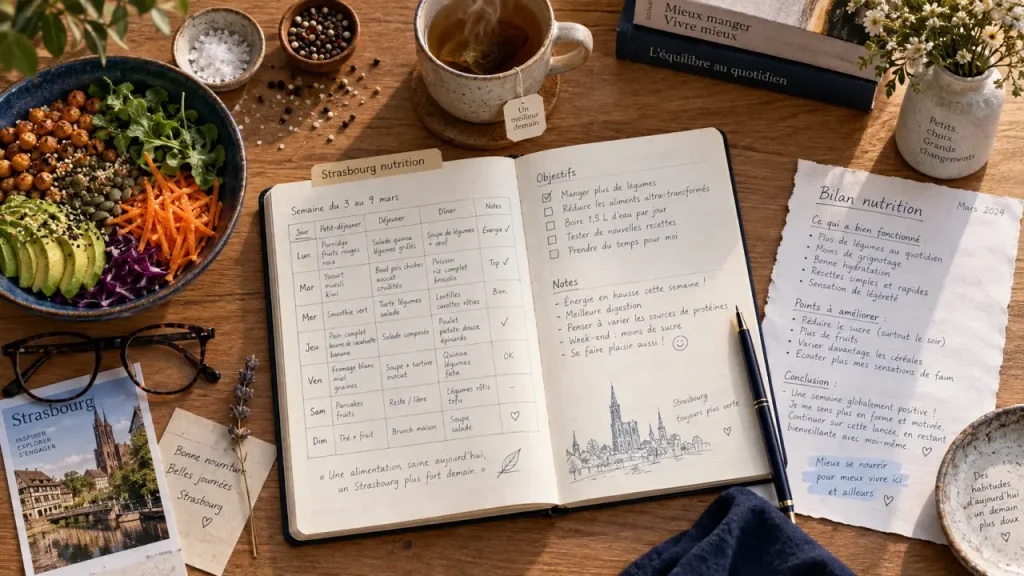 Mieux manger
Vivre mieux
L'équilibre au quotidien
Un
meilleur
demain
Petits
choix
Grands
changements
Strasbourg nutrition
Semaine du 3 au 9 mars
Jour Petit-déjeuner Déjeuner Dîner Notes
Lun Porridge fruits rouges noix Salade quinoa légumes grillés Soupe de légumes + œuf Énergie ✓
Mar Yaourt muesli kiwi Bowl pois chiches avocat crudités Poisson riz complet brocolis Top ✓
Mer Smoothie vert Tarte légumes salade Lentilles carottes rôties Bien
Jeu Pain complet beurre de cacahuète banane Salade composée Poulet patate douce épinards ✓
Ven Fromage blanc miel graines Soupe + tartine avocat Quinoa légumes feta OK
Sam Pancakes fruits Reste / libre Légumes rôtis tofu -
Dim Thé + fruit Brunch maison Soupe salade ♡
« Une alimentation saine aujourd'hui,
un Strasbourg plus fort demain. »
Objectifs
☑ Manger plus de légumes
☐ Réduire les aliments ultra-transformés
☐ Boire 1,5 L d'eau par jour
☐ Tester de nouvelles recettes
☐ Prendre du temps pour moi
Notes
- Énergie en hausse cette semaine !
- Meilleure digestion
- Penser à varier les sources de protéines
- Week-end : moins de sucre
- Se faire plaisir aussi ! ☺
Strasbourg
toujours plus verte
♡
Bilan nutrition
Mars 2024
Ce qui a bien fonctionné :
• Plus de légumes au quotidien
• Moins de grignotage
• Bonne hydratation
• Recettes simples et rapides
• Sensation de légèreté
Points à améliorer :
• Réduire le sucre (surtout le soir)
• Plus de fruits
• Varier davantage les céréales
• Écouter plus mes sensations de faim
Conclusion :
- Une semaine globalement positive !
Je me sens plus en forme et motivée.
Continuer sur cette lancée, en restant
bienveillante avec moi-même. ♡
Mieux se nourrir
pour mieux vivre ici
et ailleurs ♡
Des
habitudes
d'aujourd'hui
un demain
plus doux
♡
Strasbourg
INSPIRER
EXPLORER
S'ENGAGER
Bonne nourriture
Belles journées
Strasbourg
♡